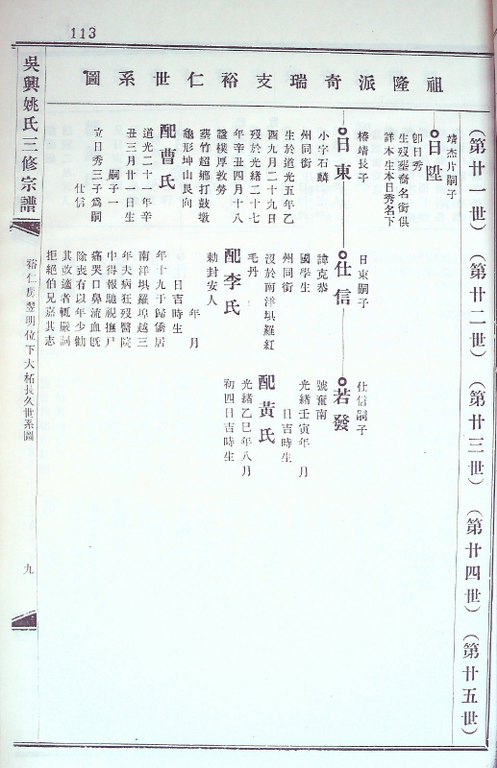 113
祖隆派奇瑞支裕仁世系圖
吳興姚氏三修宗譜
裕仁房翌明位下大柘長久世系圖
九
(第廿一世)
(第廿二世)
(第廿三世)
(第廿四世)
(第廿五世)
靖杰片嗣子
日陞
卽日秀
生歿塟喬名銜俱
詳本生本日秀名下
椿靖長子
日東
小字石麟
州同銜
生於道光五年乙
酉九月二十九日
歿於光緒二十七
年辛丑四月十八
諡樸厚敦勞
塟竹超鄉打鼓墩
龜形坤山艮向
配曹氏
道光二十一年辛
丑三月廿一日生
嗣子一
立日秀三子爲嗣
仕信
日東嗣子
仕信
諱克恭
國學生
州同銜
沒於南洋埧羅紅
毛丹
配李氏
勅封安人
年 月
日吉時生
年十九于歸僑居
南洋埧羅埠越三
年夫病狂歿醫院
中得報馳視撫尸
痛哭口鼻流血旣
除喪有以年少勸
其改適者輒嚴詞
拒絕伯兄嘉其志
仕信嗣子
若發
號奮南
光緒壬寅年 月
日吉時生
配黃氏
光緒乙巳年八月
初四日吉時生